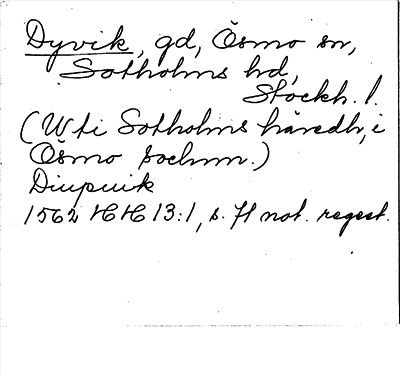 Dyvik, gd, Ösmo sn,
Sotholms hd,
Stockh. l.
(W ti Sotholms häredh, i
Ösmo sochnn.)
Diupuik
1562 HH 13:1, s. 71 not. regest.